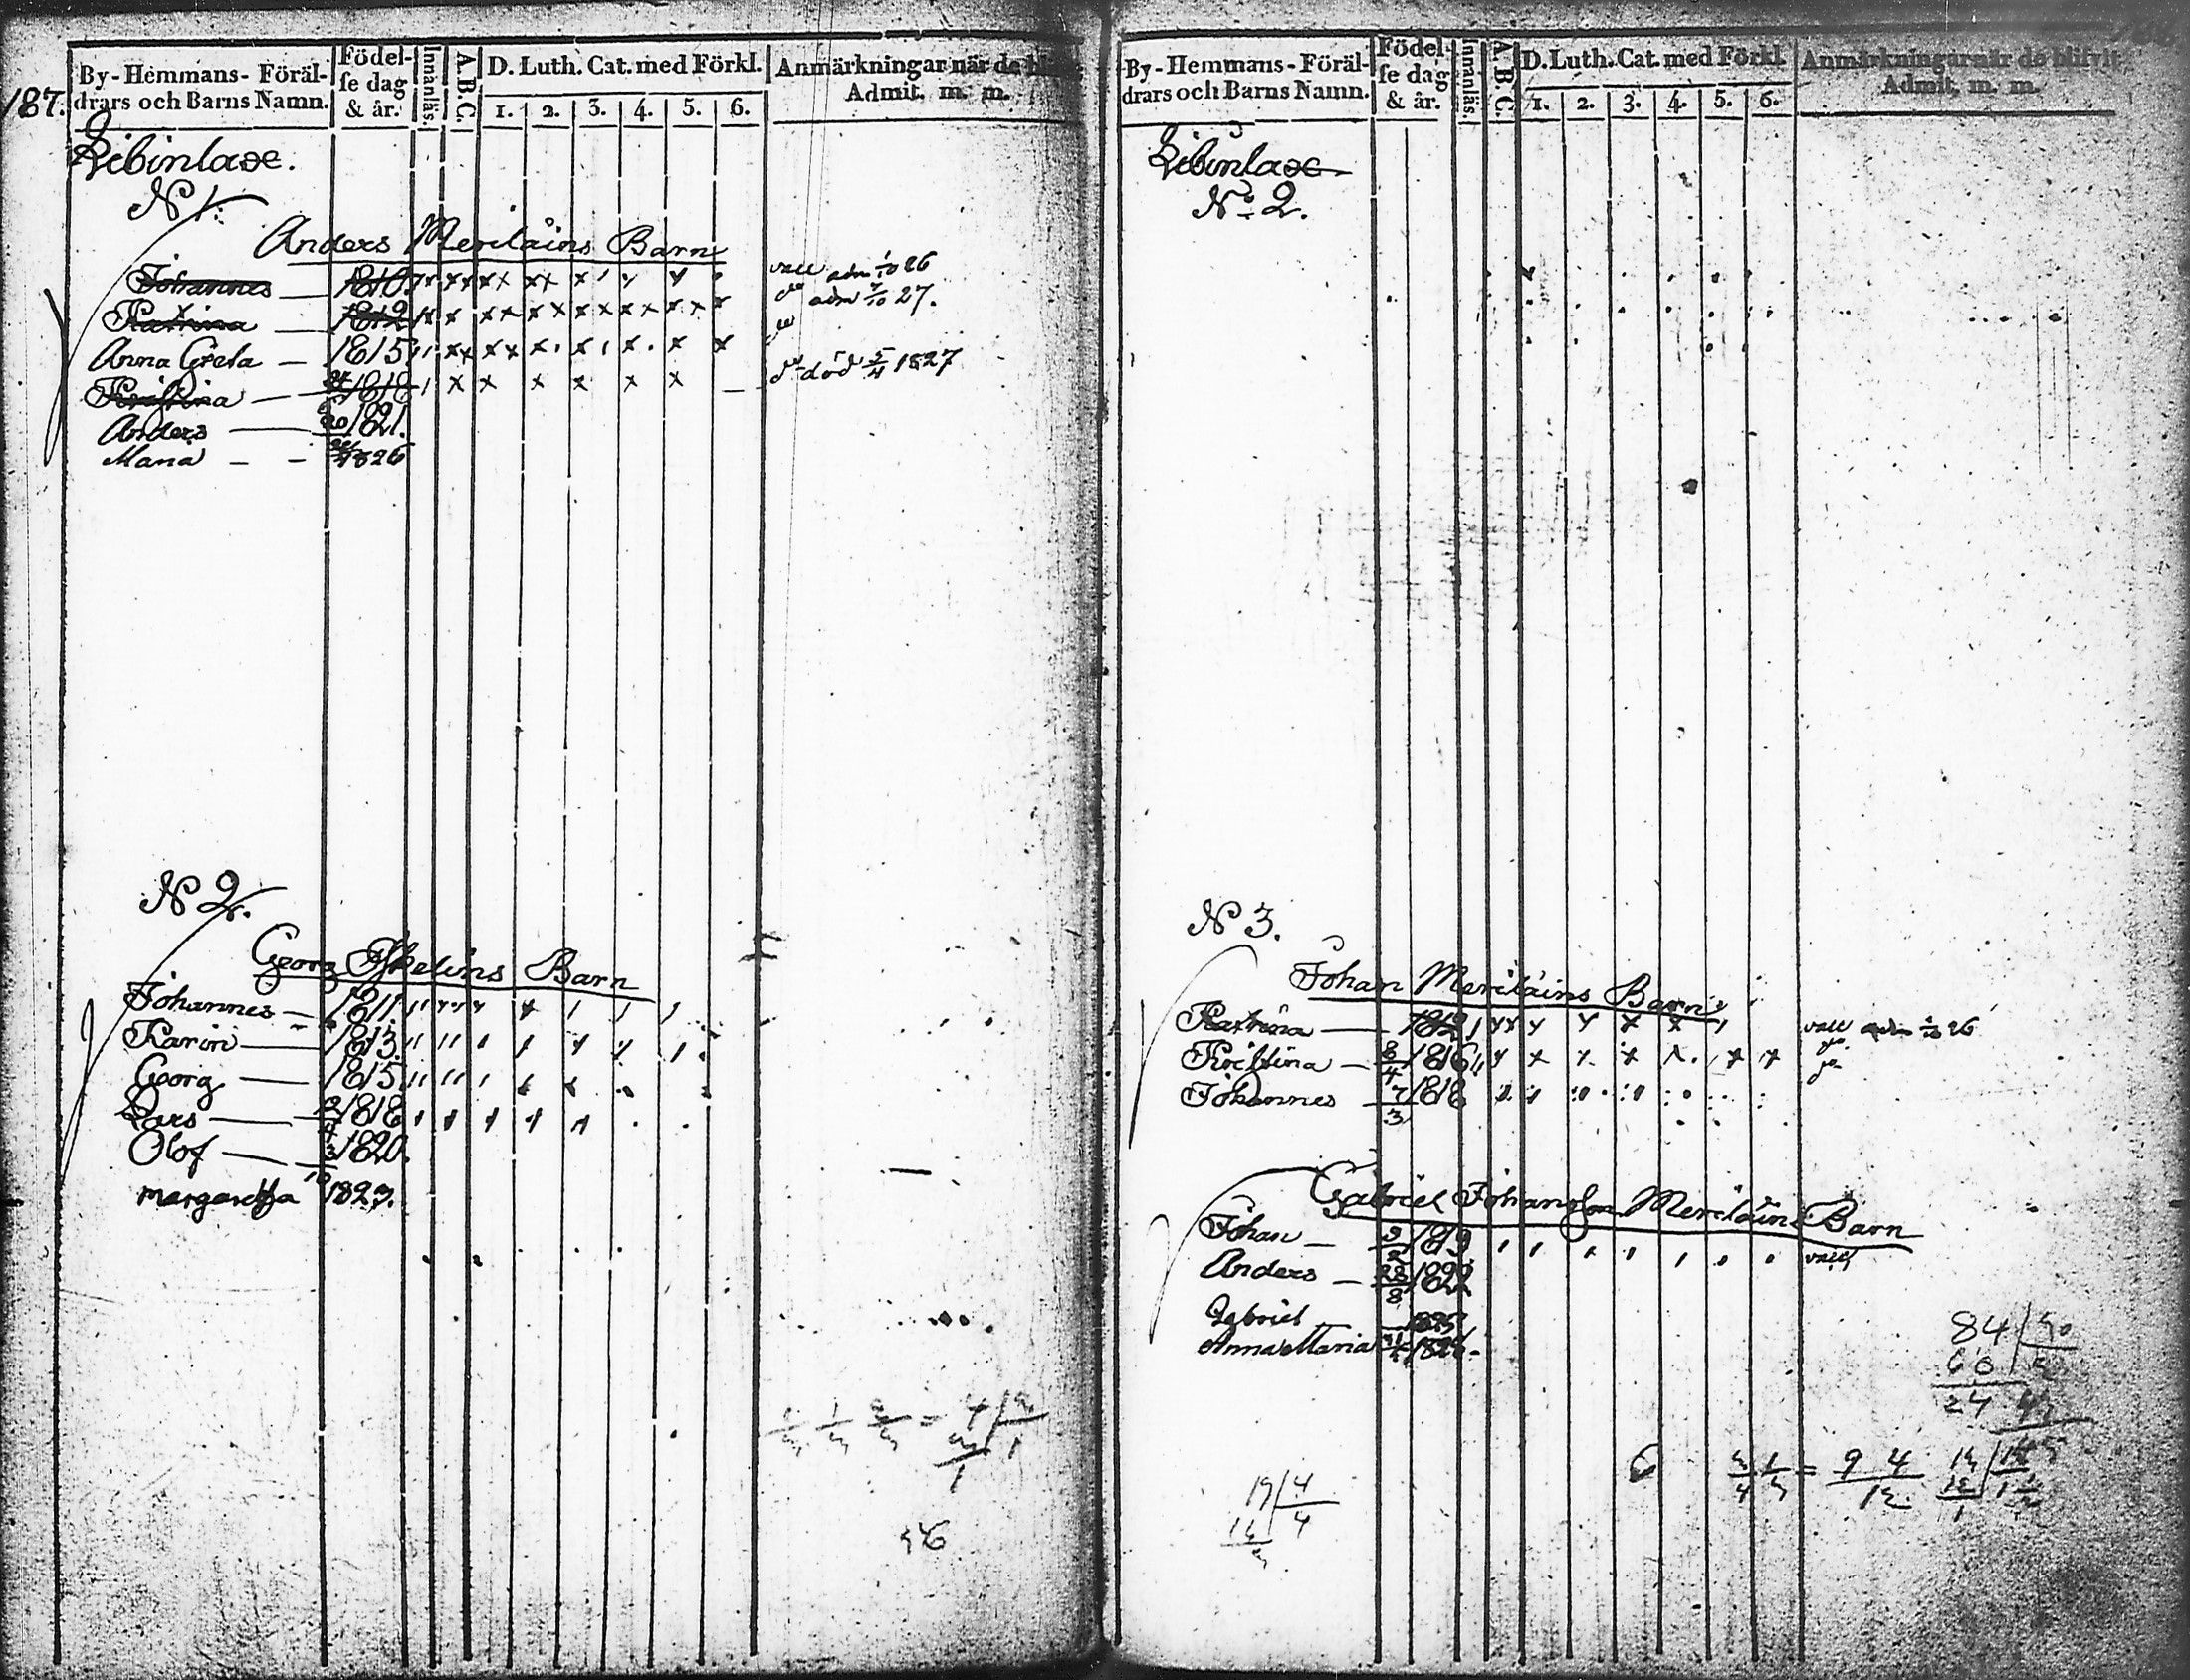 187.
By-Hemmans-Föräl-
drars och Barns Namn.
Födel-
se dag
& år.
Innanläs.
A.B.C.
D. Luth. Cat. med Förkl.
1. 2. 3. 4. 5. 6.
Anmärkningar när de
Admit. m. m.
Libinlax.
N 1.
Anders Meriläins Barn
Johannes — 1810. vall adm 26
Katrina — 1812 do adm 27.
Anna Greta — 1815
Kristina — 1818 do död 5/4 1827
Anders — 1821.
Maria — 1826
N 2.
Georg Iskelins Barn
Johannes — 1811.
Karin — 1813.
Georg — 1815.
Lars — 1818
Olof — 1820.
Margaretha 1823.
46
By-Hemmans-Föräl-
drars och Barns Namn.
Födel-
se dag
& år.
Innanläs.
A.B.C.
D. Luth. Cat. med Förkl.
1. 2. 3. 4. 5. 6.
Anmärkningar när de blifvit
Admit. m. m.
Libinlax
No 2.
N 3.
Johan Meriläins Barn
Katrina — 1812 vall adm 26
Kristina — 8/4 1816
Johannes — 7/3 1818
Gabriel Johansson Meriläins Barn
Johan — 9/2 1819 vall
Anders — 28/8 1822
Gabriel 1825
Anna Maria
84
60
24
6
9 4
12
19/4
4